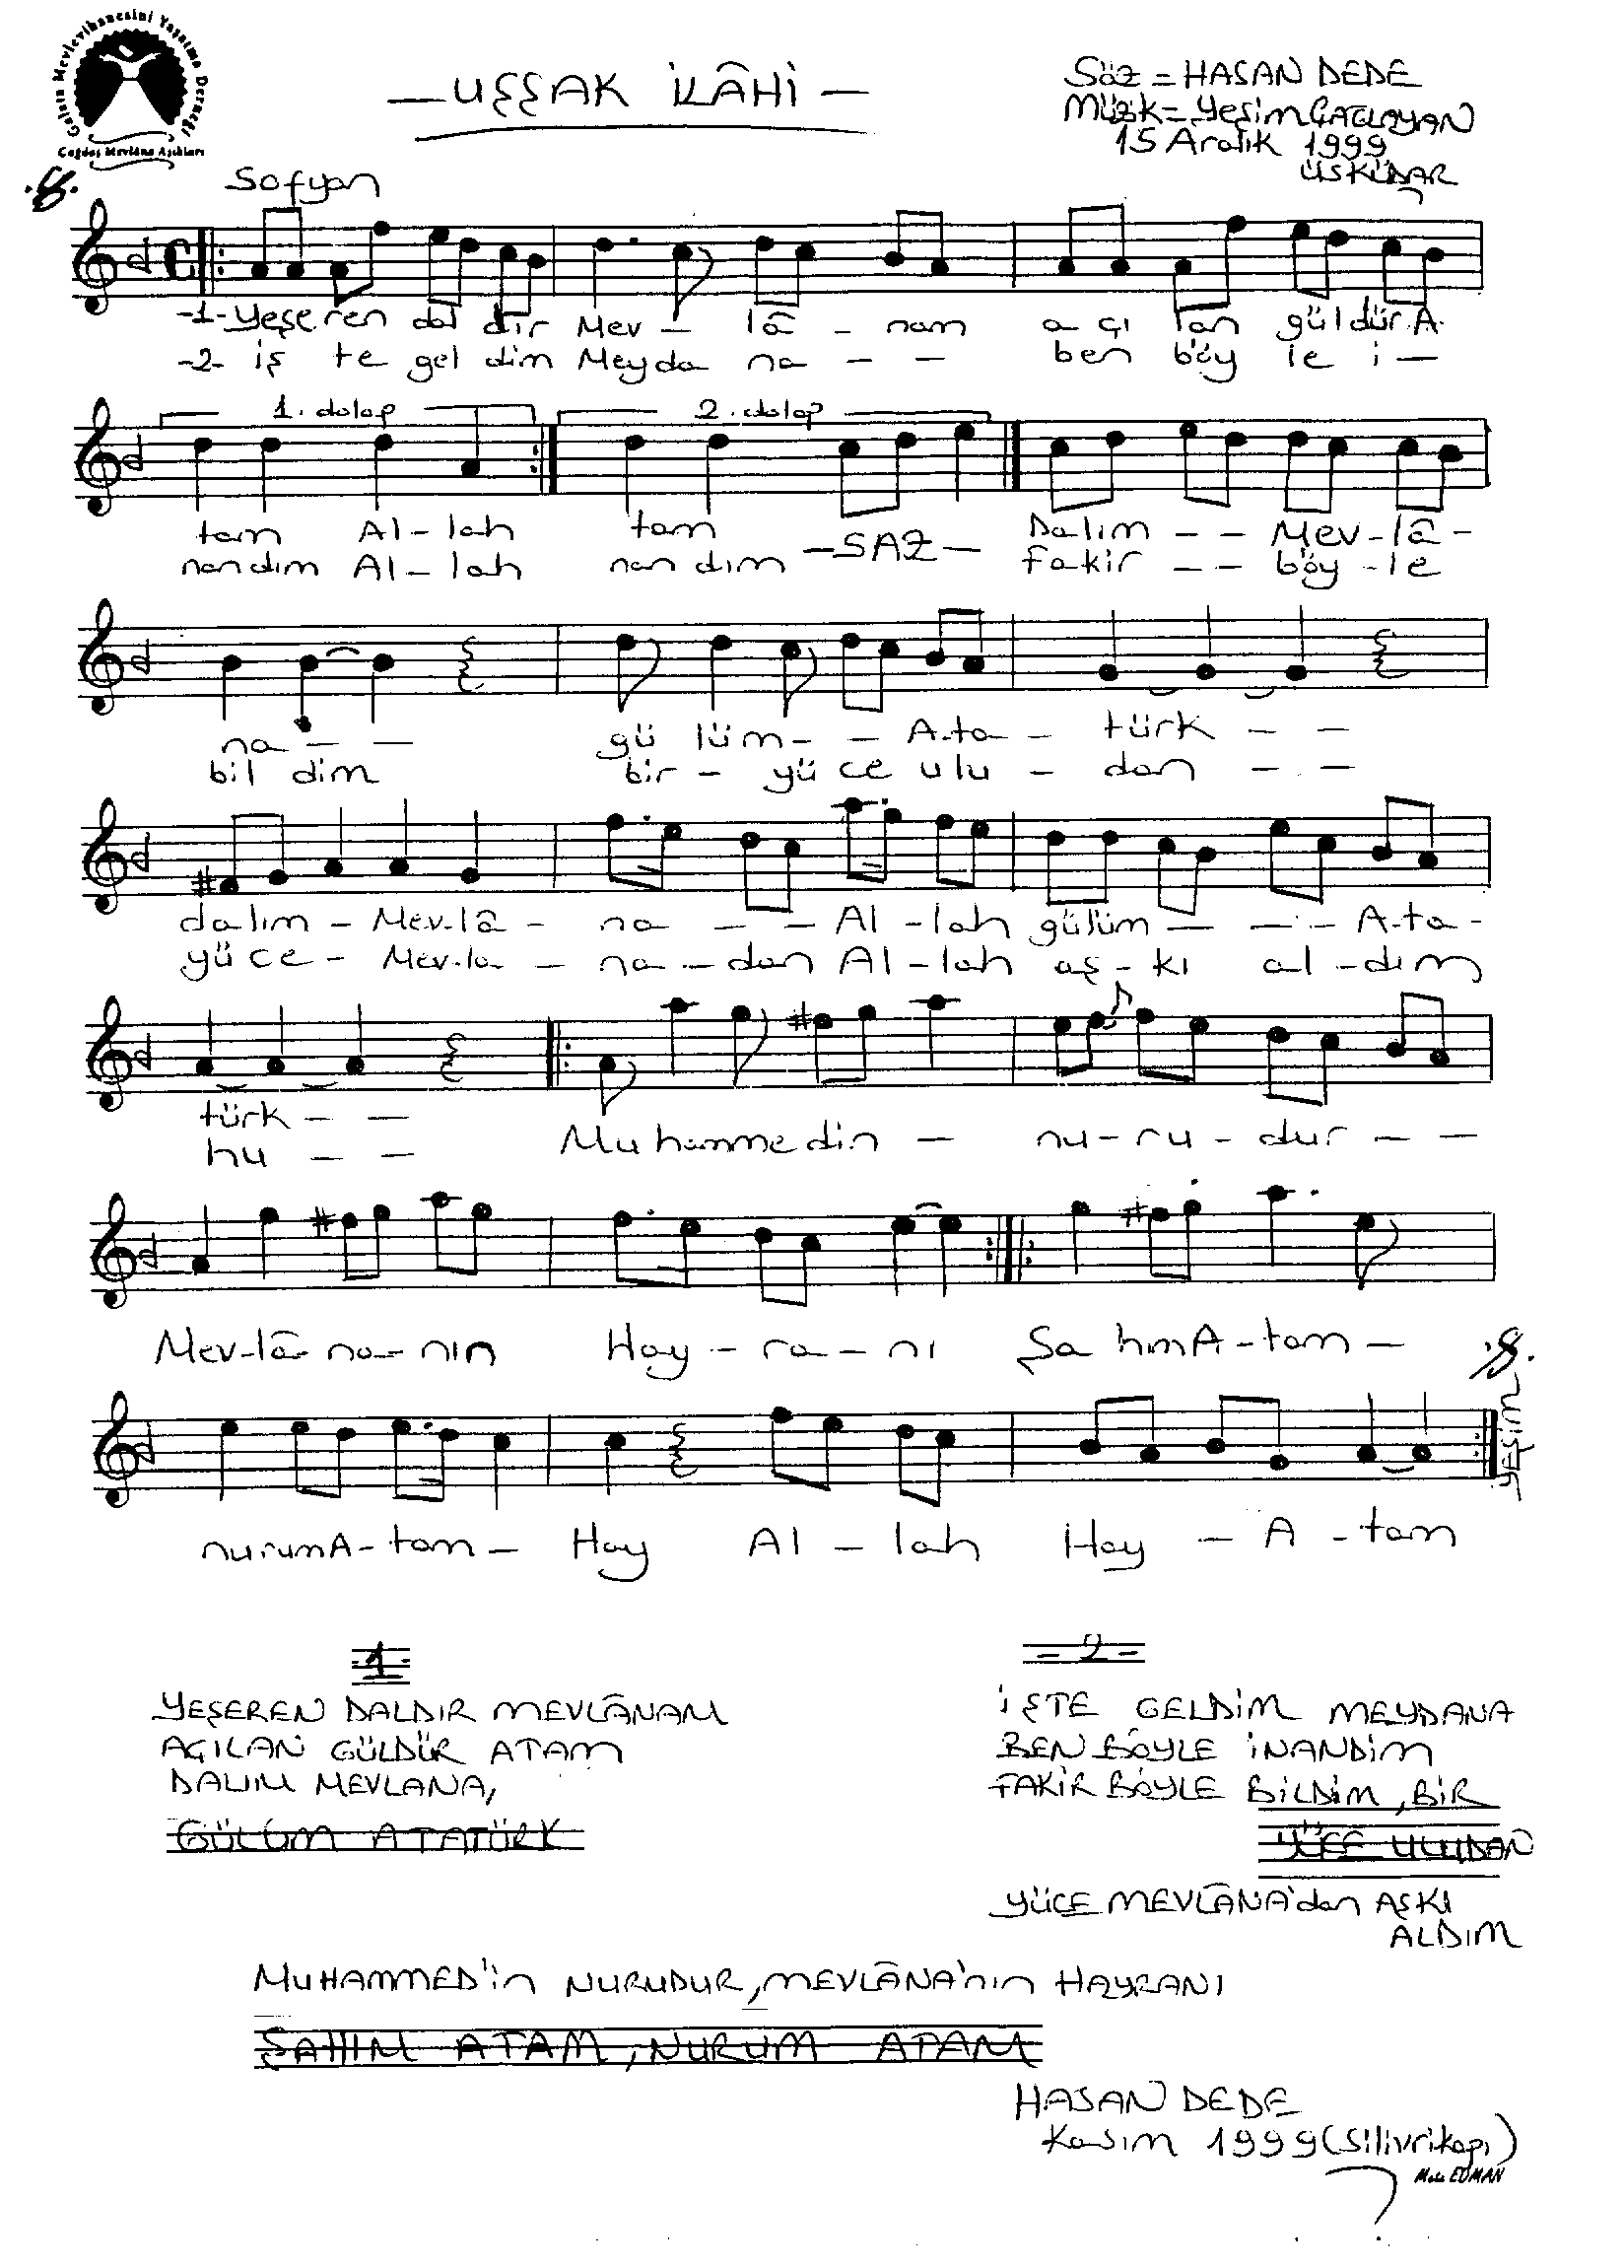 Galata Mevlevihanesini Yaşatma Derneği
Çağdaş Mevlâna Aşıkları
— UŞŞAK İLÂHİ —
Söz = HASAN DEDE
Müzik = Yeşim ÇAĞLAYAN
15 Aralık 1999
ÜSKÜDAR
Sofyan
-1- Yeşe ren dal dır Mev — lâ - nam a çı lan güldür.A-
-2- iş te gel dim Meyda na - - — ben böy le i —
1. dolap 2. dolap
tam Al-lah tam Dalım - - Mev-lâ -
nandım Al-lah nan dım —SAZ— fakir - - böy-le
na - — gü lüm - - A-ta - türk - -
bil dim bir - yü ce ulu - dan - -
dalım - Mev-lâ - na - - Al - lah gülüm — - - A-ta -
yü ce - Mev-la - na - dan Al - lah aş - kı al - dım
türk - —
hu - - Mu hammedin — nu - ru - dur - -
Mev-lâ- na - nın Hay - ra - nı Şa hımA-tam -
nurumA-tam - Hay Al - lah Hay - A - tam
YEŞİM
-1-
YEŞEREN DALDIR MEVLÂNAM
AÇILAN GÜLDÜR ATAM
DALIM MEVLANA,
GÜLÜM ATATÜRK
- 2 -
İŞTE GELDİM MEYDANA
BEN BÖYLE İNANDIM
FAKİR BÖYLE BİLDİM, BİR
YÜCE ULUDAN
YÜCE MEVLÂNA'dan AŞKI
ALDIM
MUHAMMED'in NURUDUR, MEVLÂNA'nın HAYRANI
ŞAHIM ATAM, NURUM ATAM
HASAN DEDE
Kasım 1999 (Silivrikapı)